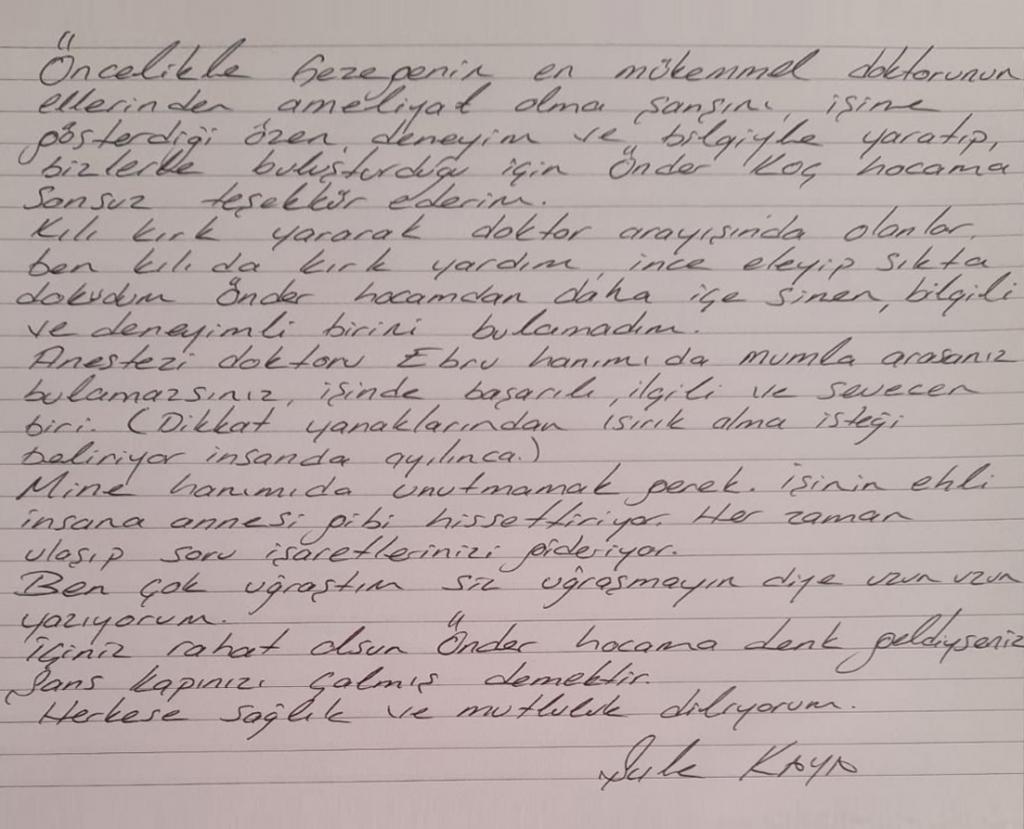 Öncelikle Gezegenin en mükemmel doktorunun
ellerinden ameliyat olma şansını, işine
gösterdiği özen, deneyim ve bilgiyle yaratıp,
bizlerle buluşturduğu için Önder Koç hocama
Sonsuz teşekkür ederim.
Kılı kırk yararak doktor arayışında olanlar,
ben kılı da kırk yardım, ince eleyip sıkta
dokudum Önder hocamdan daha içe sinen, bilgili
ve deneyimli birini bulamadım.
Anestezi doktoru Ebru hanımıda mumla arasanız
bulamazsınız, işinde başarılı, ilgili ve sevecen
biri. (Dikkat yanaklarından ısırık alma isteği
beliriyor insanda ayılınca.)
Mine hanımıda unutmamak gerek. İşinin ehli
insana annesi gibi hissettiriyor. Her zaman
ulaşıp soru işaretlerinizi gideriyor.
Ben çok uğraştım siz uğraşmayın diye uzun uzun
yazıyorum.
İçiniz rahat olsun Önder hocama denk geldiyseniz
Şans kapınızı çalmış demektir.
Herkese sağlık ve mutluluk diliyorum.
Şule KAYA